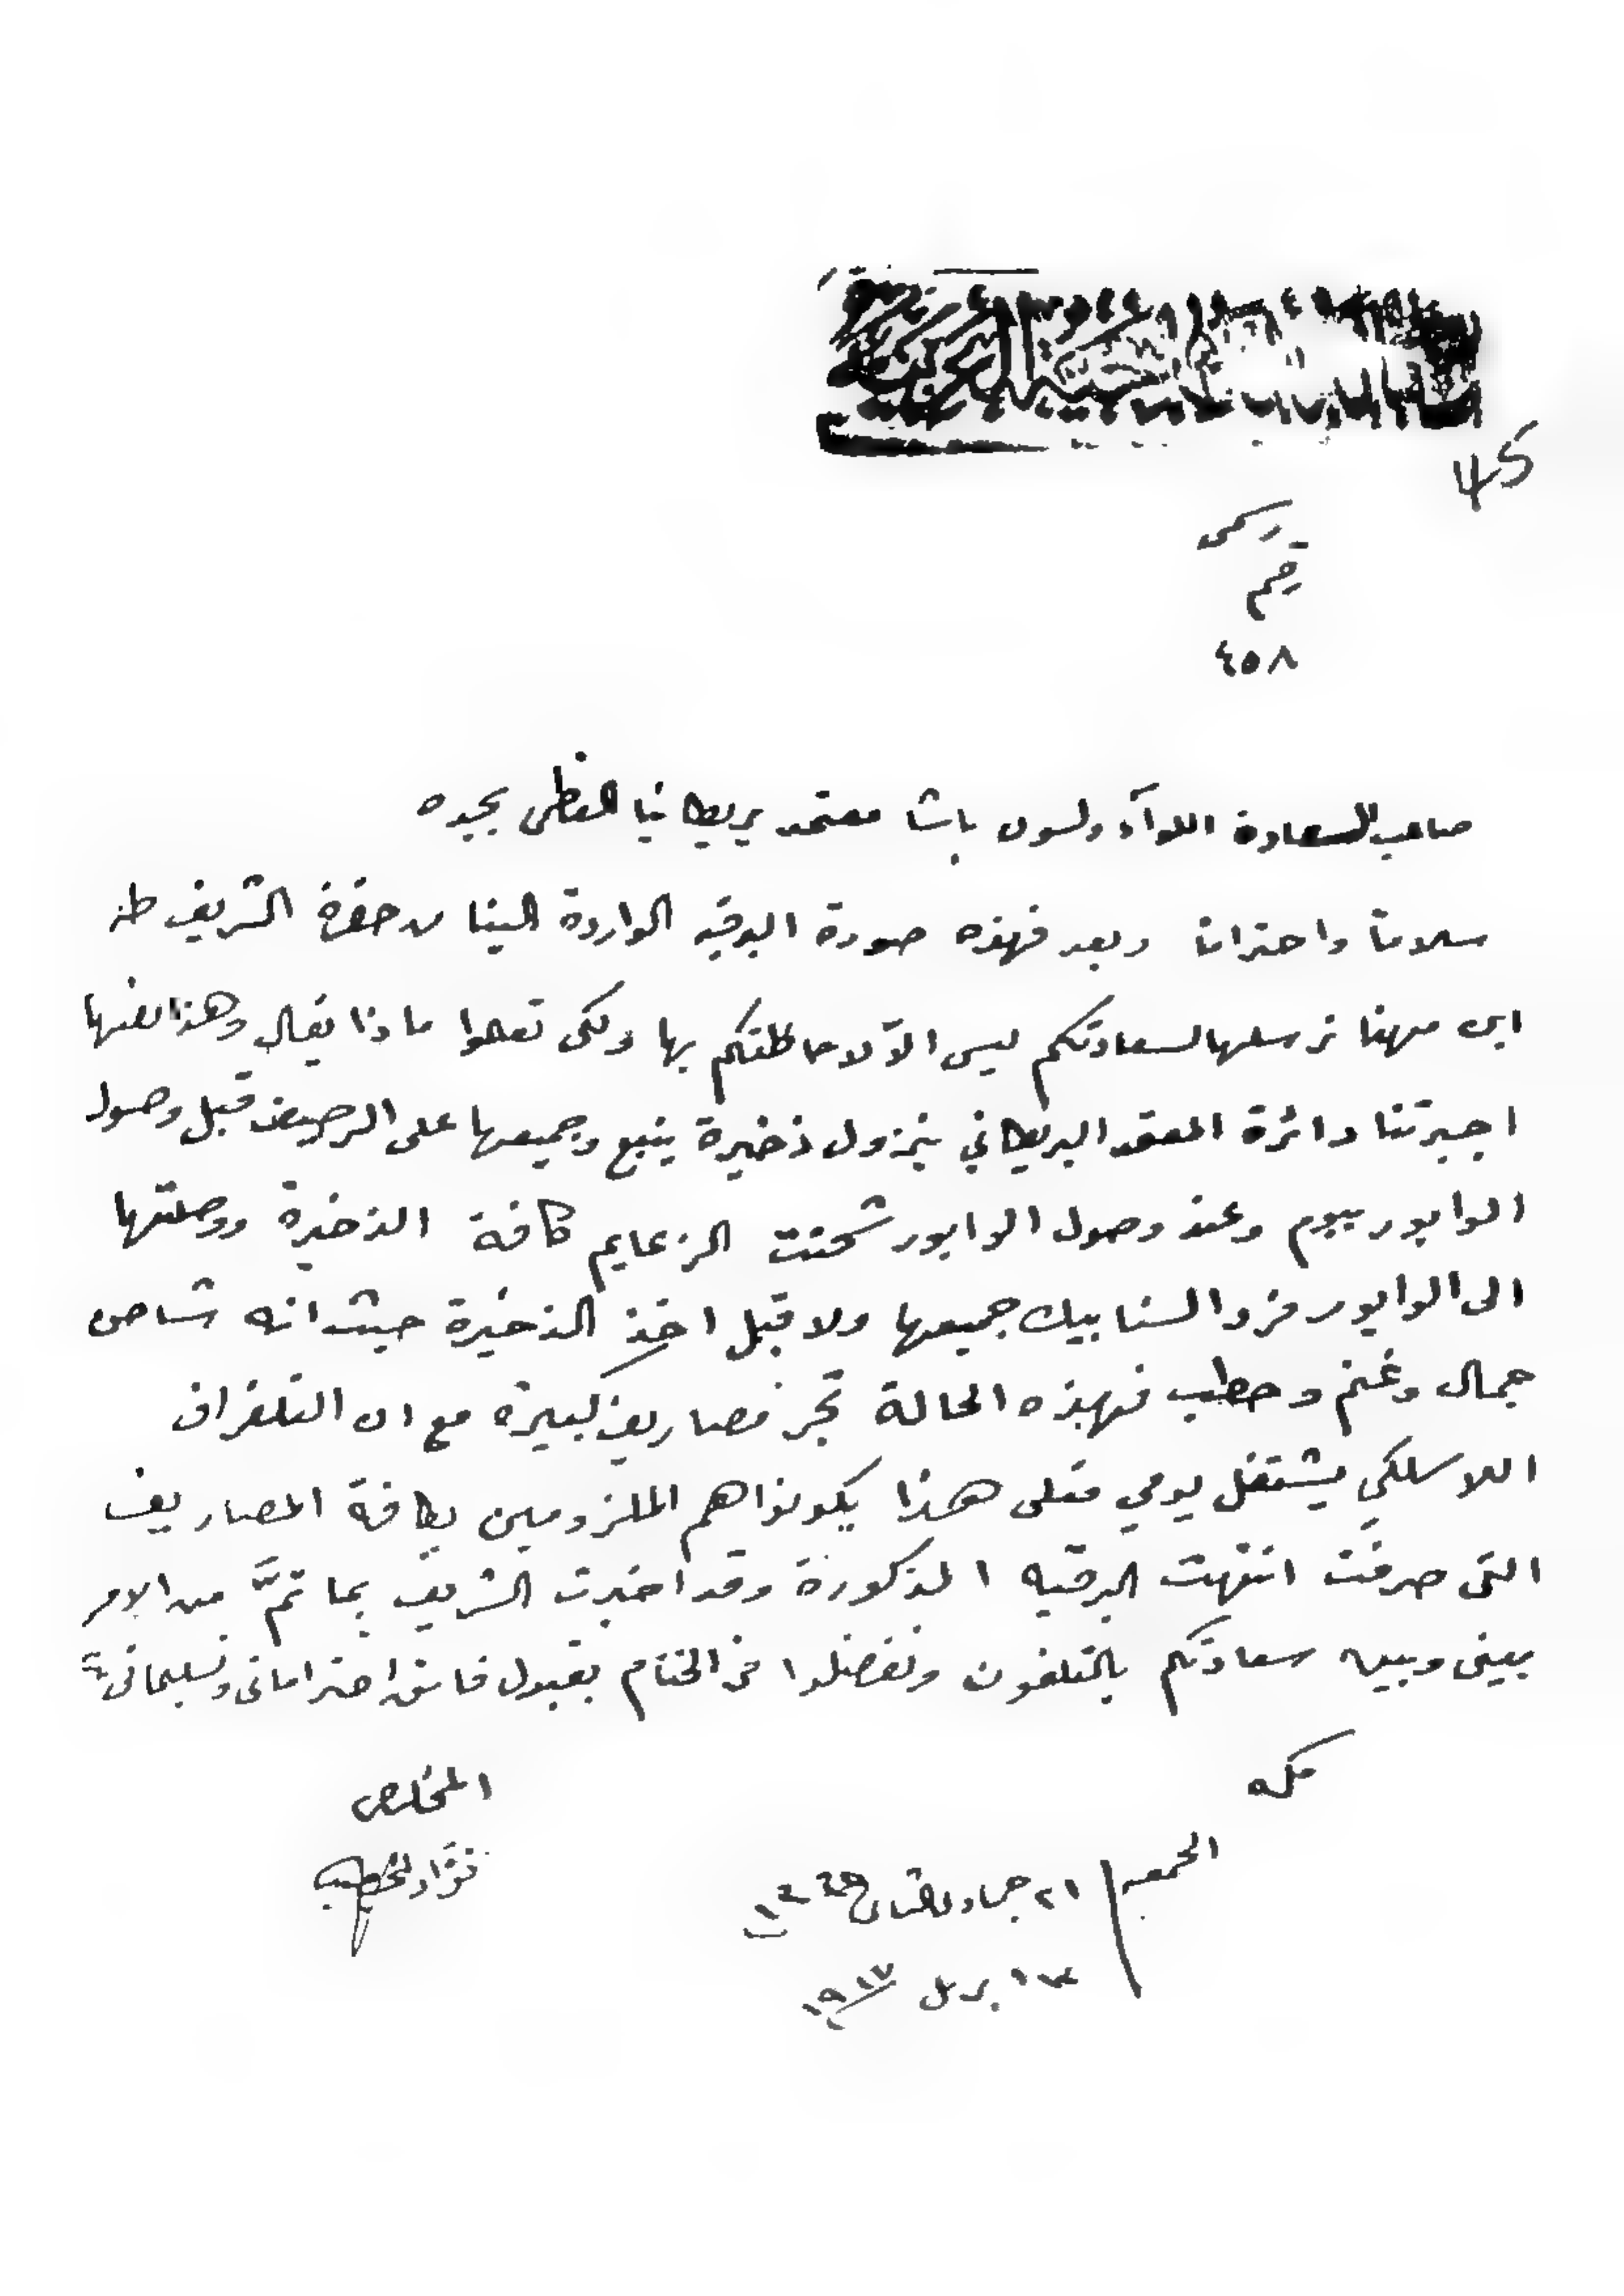 45
رسمى
رقم
٤٥٨
صاحب السعادة اللوآء ولسون باشا معتمد بريطانيا العظمى بجده
سلاماً واحتراماً وبعد فهذه صورة البرقيه الواردة الينا من حضرة الشريف
ابن مهنا نرسلها لسعادتكم ليس الاّ لاحاطتكم بها ولكى تعلموا ماذا يقال وهذا نصها
اجبرتنا دائرة المعتمد البريطاني بنزول ذخيرة ينبع وجميعها على الرصيف قبل وصول
الوابور بيوم وعند وصول الوابور شحنت الزعايم كافة الذخيرة ووصلتها
الى الوابور فردوا السنابيك جميعها ولا قبل اخذ الذخيرة حيث انه شاحن
جمال وغنم وحطب فهذه الحالة تجر مصاريف كبيرة مع ان التلغراف
اللاسلكي يشتغل يومي فعلى هذا يكونوا هم الملزومين بكافة المصاريف
التى صرفت انتهت البرقيه المذكورة وقد اخبرت الشريف بما تمَّ من الامر
بينى وبين سعادتكم بالتلفون وتفضلوا فى الختام بقبول فائق احتراماتى وتسليماتى
مكه
المخلص
فؤاد الخطيب
الجمعه ٢١ جماد الثانى ١٣٣٥
١٣ ابريل ١٩١٧